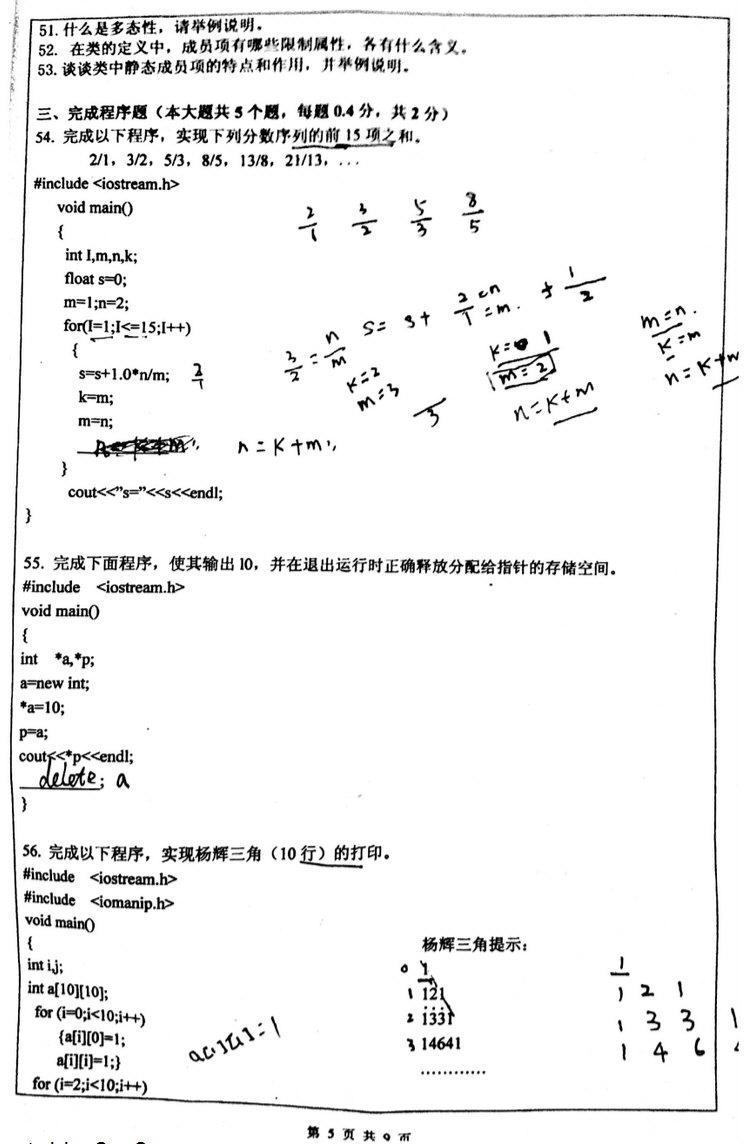 51. 什么是多态性，请举例说明。
52. 在类的定义中，成员项有哪些限制属性，各有什么含义。
53. 谈谈类中静态成员项的特点和作用，并举例说明。
三、完成程序题（本大题共 5 个题，每题 0.4 分，共 2 分）
54. 完成以下程序，实现下列分数序列的前 15 项之和。
2/1，3/2，5/3，8/5，13/8，21/13，...
#include <iostream.h>
void main()
2/1 3/2 5/3 8/5
{
int I,m,n,k;
float s=0;
m=1;n=2;
for(I=1;I<=15;I++)
{
s=s+1.0*n/m; 2/1
k=m;
m=n;
n = K + m;
}
cout<<"s="<<s<<endl;
}
3/2 = n/m
K=2
m=3
3
S= S+ 2/1 =n =m. + 1/2
K= 1
m=2
n=K+m
m=n.
K=m
n=K+m
55. 完成下面程序，使其输出 10，并在退出运行时正确释放分配给指针的存储空间。
#include <iostream.h>
void main()
{
int *a,*p;
a=new int;
*a=10;
p=a;
cout<<*p<<endl;
delete; a
}
56. 完成以下程序，实现杨辉三角（10 行）的打印。
#include <iostream.h>
#include <iomanip.h>
void main()
{
int i,j;
int a[10][10];
for (i=0;i<10;i++)
{a[i][0]=1;
a[i][i]=1;}
for (i=2;i<10;i++)
a[i][i]=1
杨辉三角提示：
0 1
1 121
2 1331
3 14641
…………
1
1 2 1
1 3 3 1
1 4 6 4
第 5 页 共 9 页